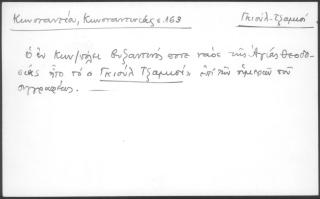 Κωνσταντίου, Κωνσταντινιάς σ. 163 Γκιούλ-Τζαμισί
Ὁ ἐν Κων/πόλει βυζαντινός ποτε ναὸς τῆς Ἁγίας Θεοδο-
σίας ἦτο τὸ Γκιούλ Τζαμισί, ἐπὶ τῶν ἡμερῶν τοῦ
συγγραφέως.